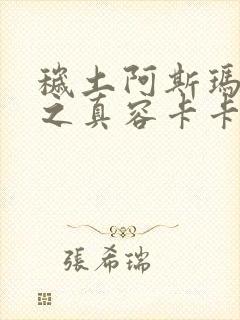 穢土阿斯瑪
之真容卡卡
張希瑞